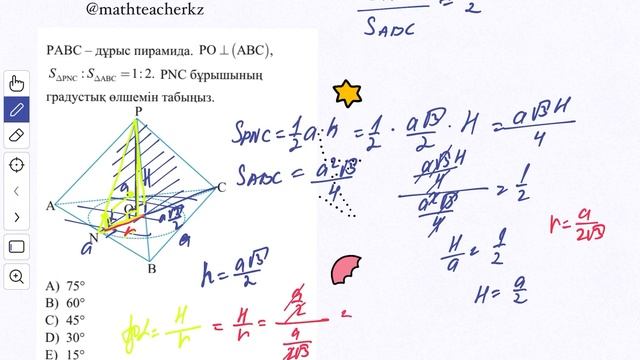 @mathteacherkz
S_ABC 2
PABC – дұрыс пирамида. PO ⊥ (ABC),
S_ΔPNC : S_ΔABC = 1 : 2. PNC бұрышының
градустық өлшемін табыңыз.
P
A
C
N
B
H
O
a
r
a√3/2
a
A) 75°
B) 60°
C) 45°
D) 30°
E) 15°
S_PNC = 1/2 a · h = 1/2 · a√3/2 · H = a√3H/4
S_ABC = a²√3/4
a√3H/4 / a²√3/4 = 1/2
r = a/2√3
H/a = 1/2
H = a/2
h = a√3/2
= H/r = H/r = a/2 / a/2√3 =